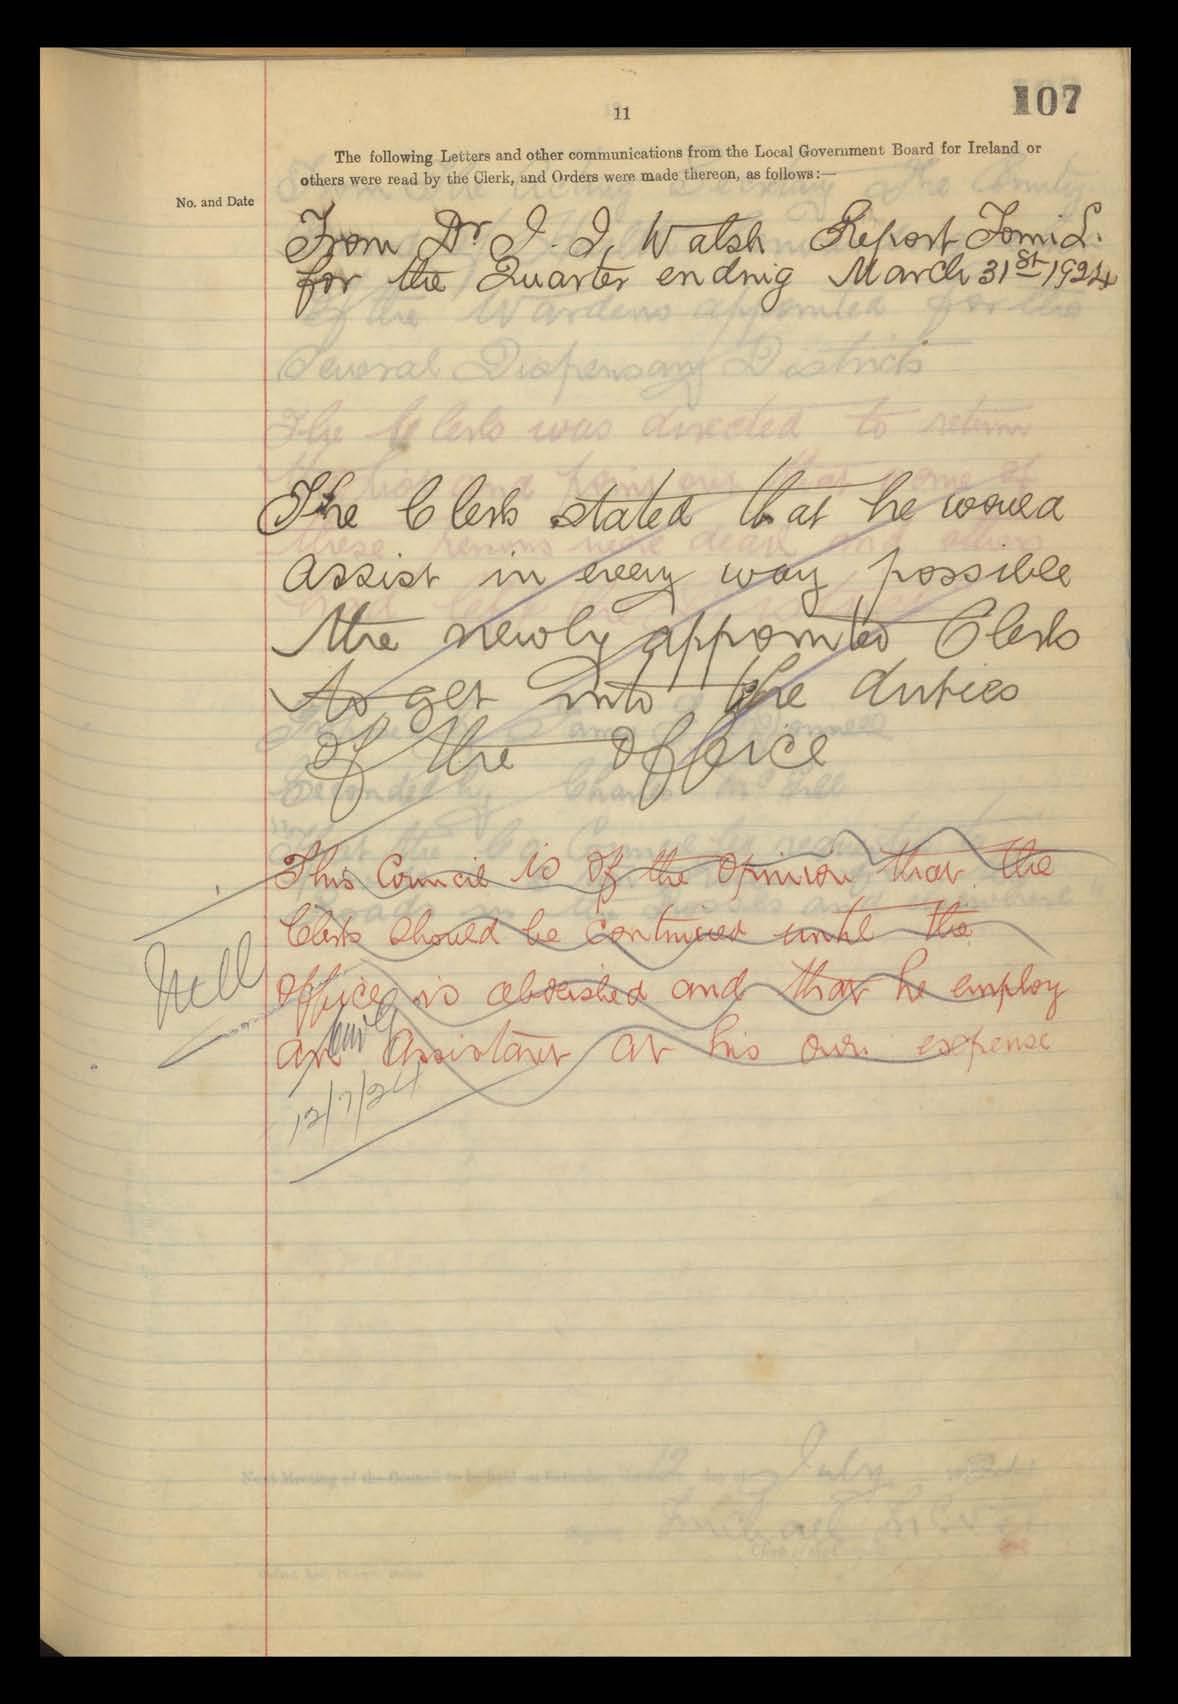 107
11
The following Letters and other communications from the Local Government Board for Ireland or
others were read by the Clerk, and Orders were made thereon, as follows:—
No. and Date
From Dr J. J. Walsh Report Form L.
for the Quarter ending March 31st 1924
The Clerk stated that he would
assist in every way possible
the newly appointed Clerk
to get into the duties
of the Office
This Council is of the opinion that the
Clerk should be continued until the
Office is abolished and that he employ
an Assistant at his own expense
Null
12/7/24